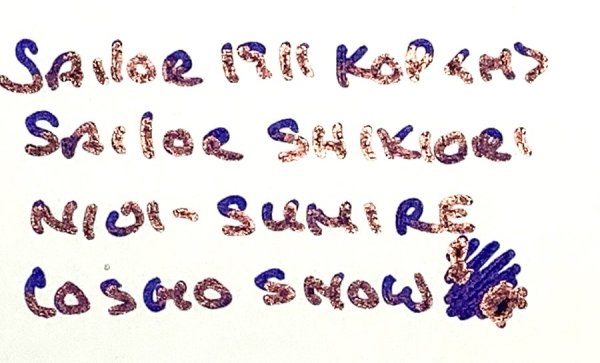 SAiloR 1911 KOP <M>
SAiloR SHIKIORI
NIOI-SUMIRE
COSMO SNOW